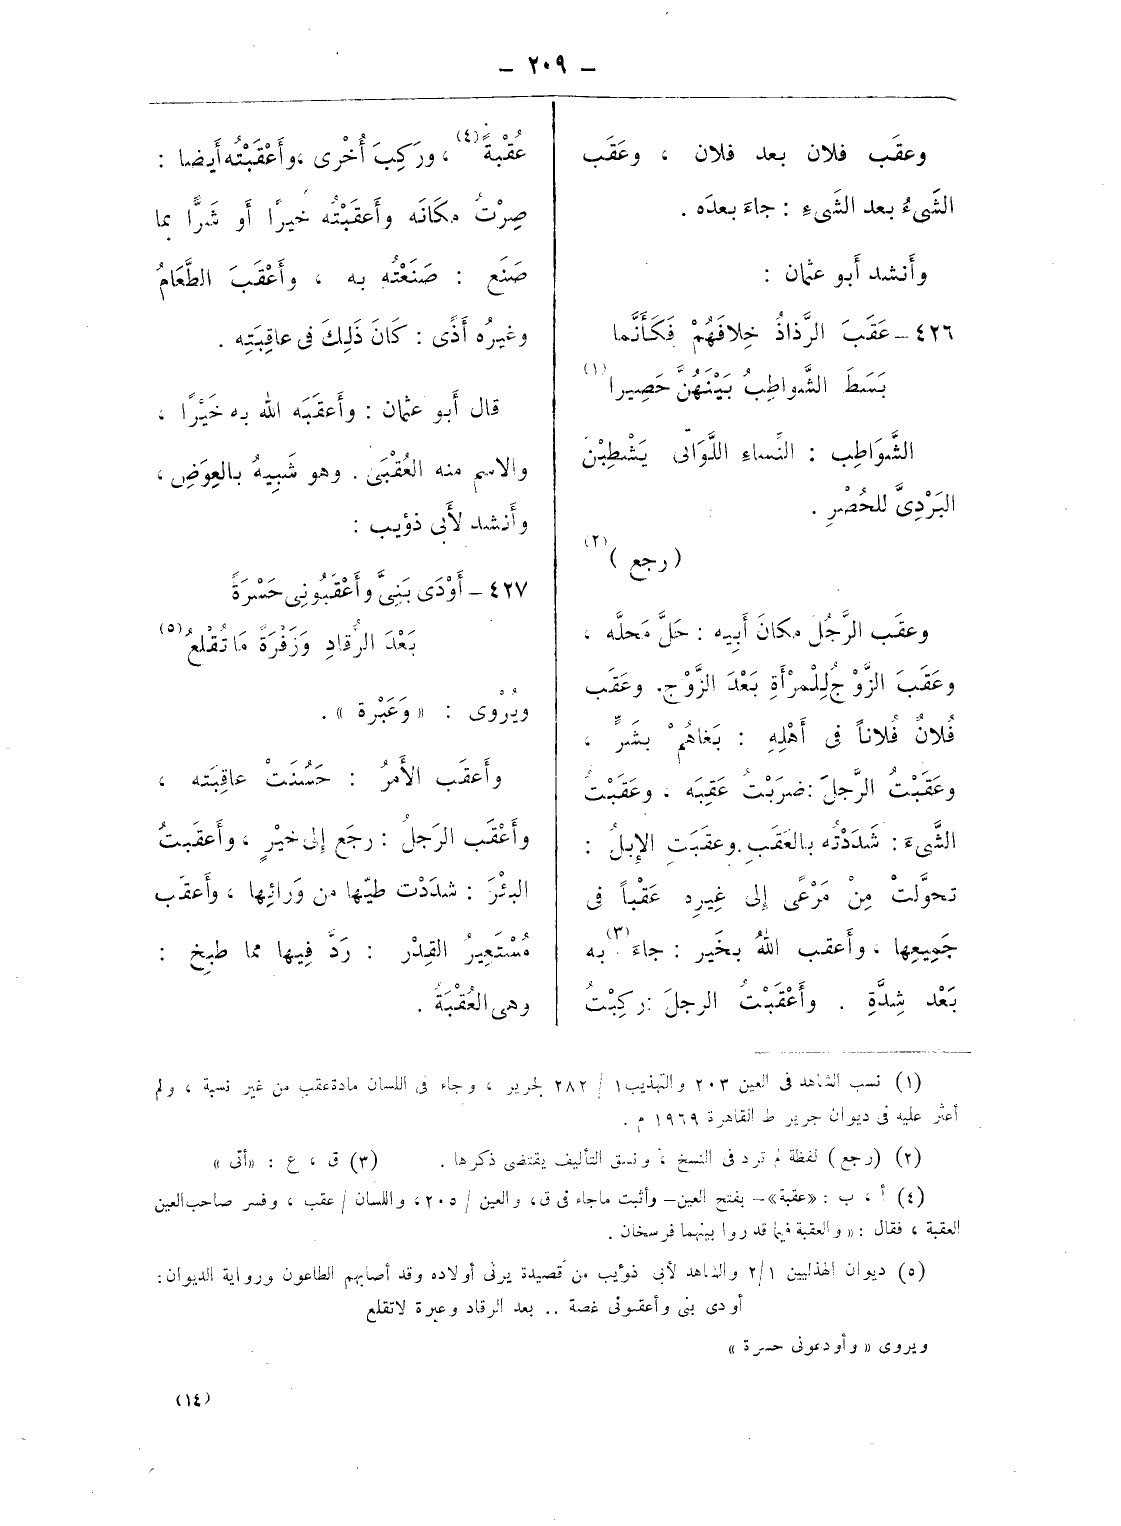 – ٢٠٩ –
وعقَب فلان بعد فلان ، وعَقَب
الشَّىءُ بعد الشَّىءِ : جاءَ بعدَه .
وأَنشد أَبو عثمان :
٤٢٦ – عَقَبَ الرَّذاذُ خِلافَهُمْ فَكَأَنَّما
بَسَطَ الشَّواطِبُ بَيْنَهُنَّ حَصِيرا (١)
الشَّوَاطِب : النِّساءِ اللَّوَاتى يَشْطِبْنَ
البَرْدِىَّ للحُصْرِ .
( رجع ) (٢)
وعقَب الرَّجُل مكانَ أَبيه : حَلَّ مَحلَّه ،
وعَقَبَ الزَّوْجُ لِلْمرْأَةِ بَعْدَ الزَّوْجِ. وعَقَب
فُلانٌ فُلاناً فى أَهْلِهِ : بَغاهُمْ بشَرٍّ ،
وعَقَبْتُ الرَّجلَ : ضرَبْتُ عَقِبَه ، وعَقَبْتُ
الشَّىءَ : شَدَدْتُه بالعَقَبِ. وعقَبَتِ الإِبلُ :
تحوَّلتْ مِنْ مَرْعًى إلى غيرِه عَقْباً فى
جَمِيعِها ، وأَعقب اللهُ بخَير : جاءَ (٣) به
بَعْد شِدَّةِ . وأَعْقَبْتُ الرجلَ : ركِبْتُ
عُقْبةً (٤) ، ورَكِبَ أُخْرى ، وأَعْقَبْتُه أَيضا :
صِرْتُ مكانَه وأَعقَبْتُه خيرًا أَو شَرًّا بما
صَنَع : صَنَعْتُه به ، وأَعْقَبَ الطَّعَامُ
وغيرُه أَذًى : كَانَ ذَلِكَ فى عاقِبَتِه .
قال أَبو عثمان : وأَعقَبَه الله به خَيْرًا ،
والاسم منه العُقْبَى . وهو شَبِيهُ بالعِوَضِ ،
وأَنشد لأَبى ذؤيب :
٤٢٧ – أَوْدَى بَنِىَّ وأَعْقَبُونِى حَسْرَةً
بَعْدَ الرُّقادِ وَزَفْرَةً مَا تُقْلعُ (٥)
ويُرْوى : « وَعَبْرة » .
وأَعقَب الأَمرُ : حَسُنَتْ عاقِبَته ،
وأَعْقَب الرَجلُ : رجَع إلى خيْرٍ ، وأَعقَبتُ
البئْرَ : شدَدْت طيّها من وَرائِها ، وأَعقَب
مُسْتَعِيرُ القِدْر : رَدَّ فِيها مما طبِخ :
وهى العُقْبَةُ .
(١) نسب الشاهد فى العين ٢٠٣ والتهذيب ١ / ٢٨٢ لجرير ، وجاء فى اللسان مادة عقب من غير نسبة ، ولم
أعثر عليه فى ديوان جرير ط القاهرة ١٩٦٩ م .
(٢) (رجع) لفظة لم ترد فى النسخ ، ونسق التأليف يقتضى ذكرها . (٣) ق ، ع : «أتى »
(٤) أ ، ب : «عقبة» – بفتح العين – وأثبت ماجاء فى ق ، والعين / ٢٠٥ ، واللسان / عقب ، وفسر صاحب العين
العقبة ، فقال : « والعقبة فيما قدروا بينهما فرسخان .
(٥) ديوان الهذليين ٢/١ والشاهد لأبى ذؤيب من قصيدة يرثى أولاده وقد أصابهم الطاعون ورواية الديوان :
أودى بنى وأعقبونى غصة .. بعد الرقاد وعبرة لاتقلع
ويروى « وأودعونى حسرة »
(١٤)